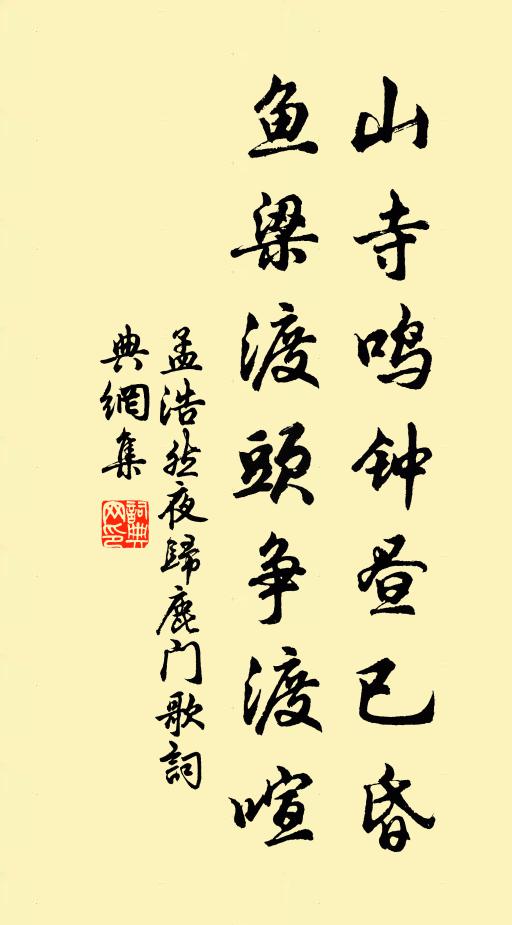 山寺鸣钟昼已昏
鱼梁渡頭争渡喧
孟浩然夜歸鹿门歌詞
典網集
詞典网印